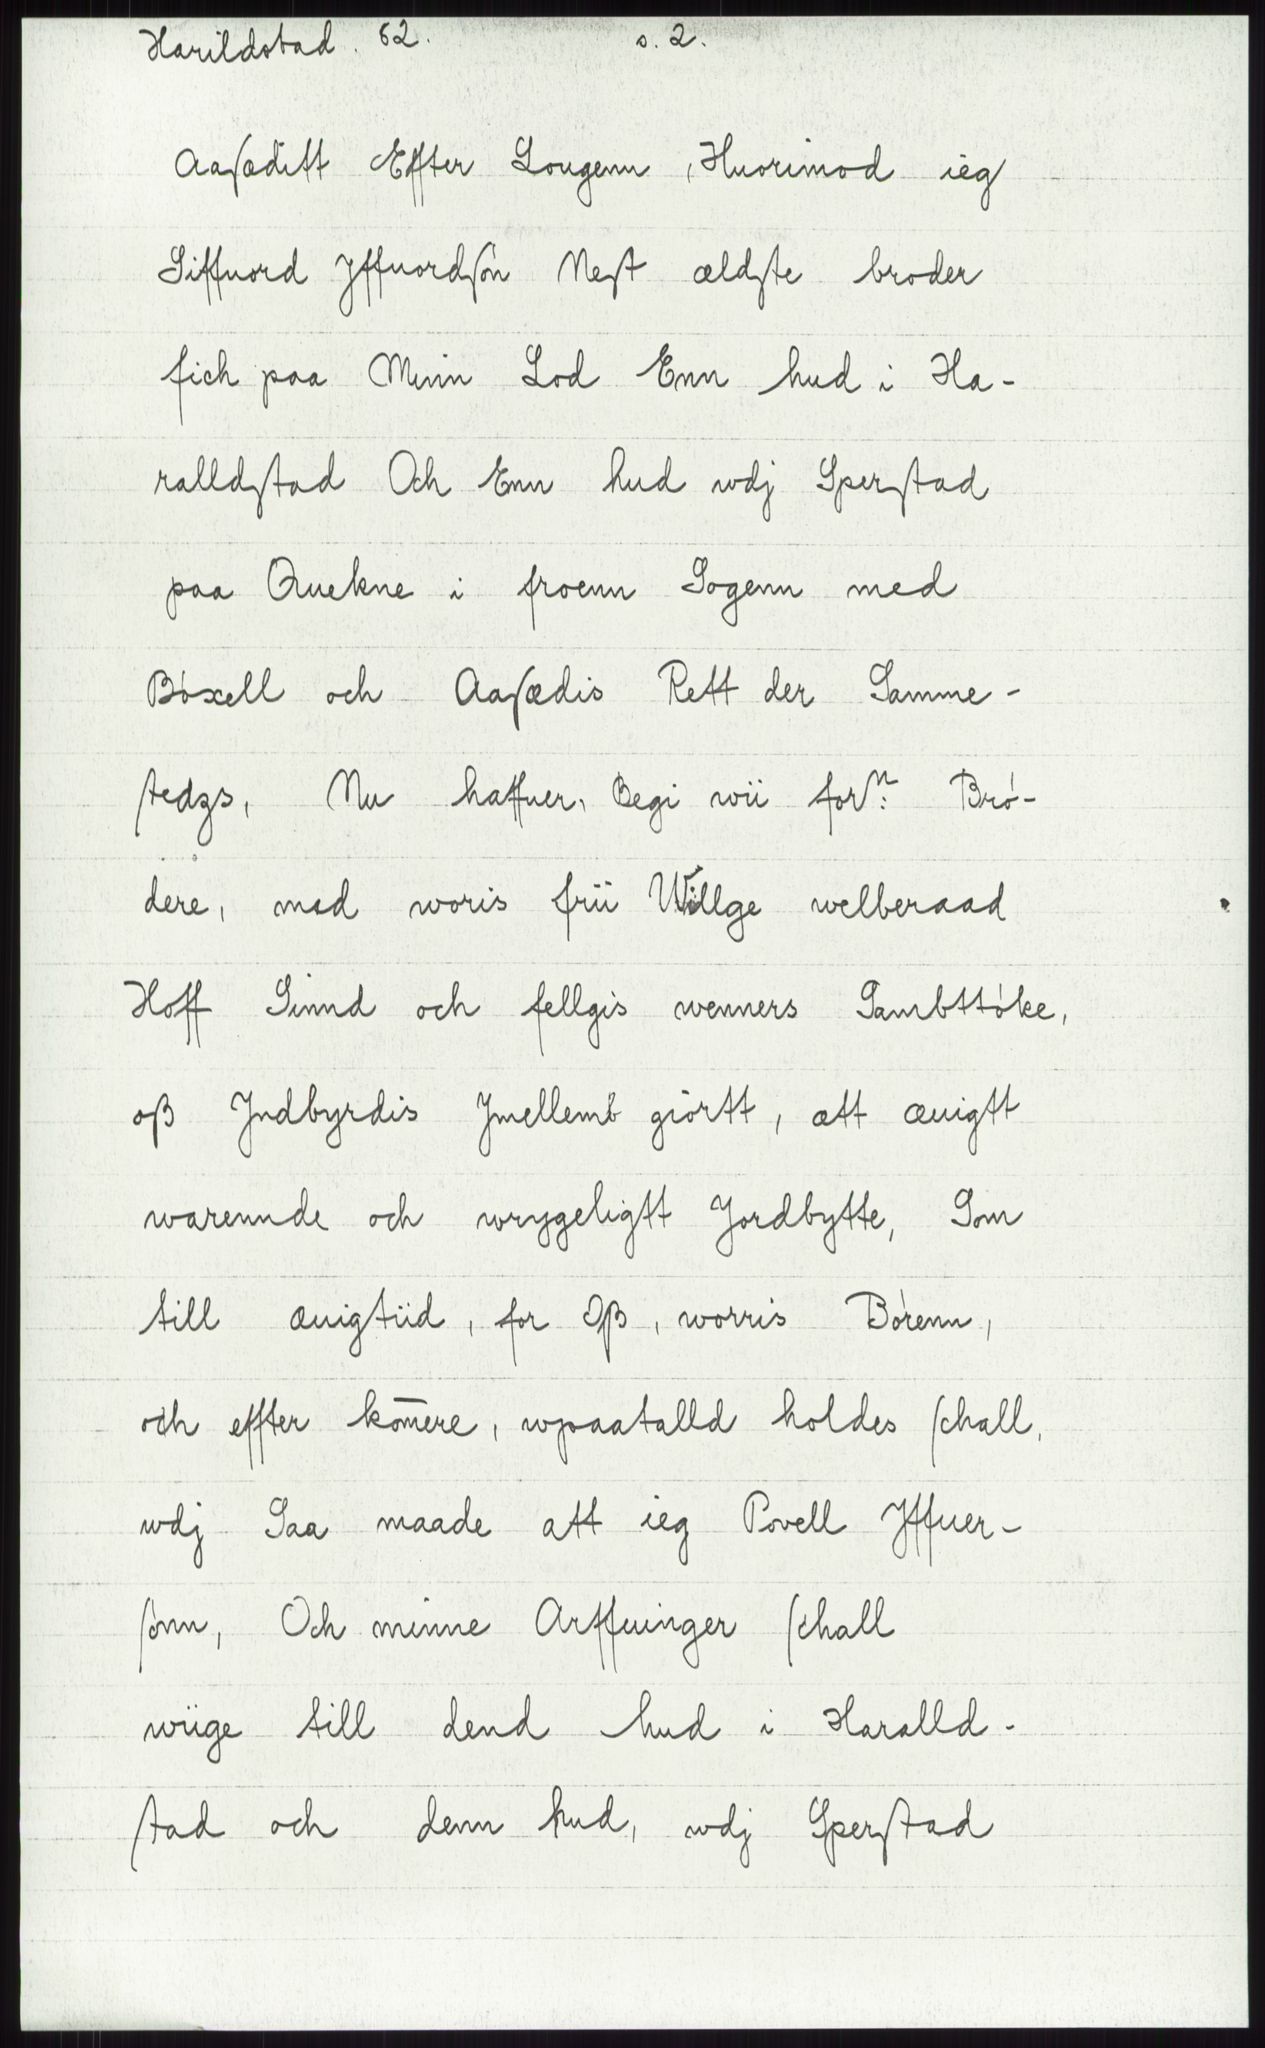 Harildstad. 62. s. 2.
Aasæditt Effter Lougenn, Huorimod ieg
Siffuord Yffuordsøn Nest ældste broder
fich paa Minn Lod Enn hud i Ha-
ralldstad Och Enn hud wdj Sperstad
paa Quekne i froenn Sogenn med
Bøxell och Aasædis Rett der Samme-
stedzs, Nu haffuer, Begi wii forn: Brø-
dere, med woris frii Willge welberaad
Hoff Sinnd och fellgis wenners Sambttøke,
oß Jndbyrdis Jmellemb giørtt, ett æuigtt
warennde och wrygeligtt Jordbytte, Som
till æuigtiid, for Oß, worris Børenn,
och effter kom̄ere, wpaatalld holdes schall,
wdj Saa maade att ieg Povell Yffuer-
sønn, Och minne Arffuinger schall
wiige till dend hud i Haralld-
stad och denn hud, wdj Sperstad